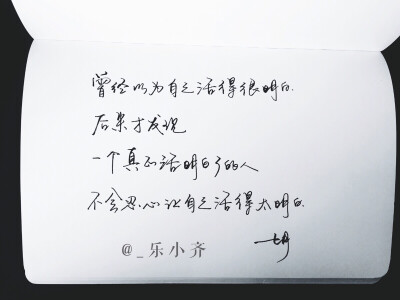 曾经以为自己活得很明白
后来才发现
一个真正活明白了的人
不会忍心让自己活得太明白
@_乐小齐